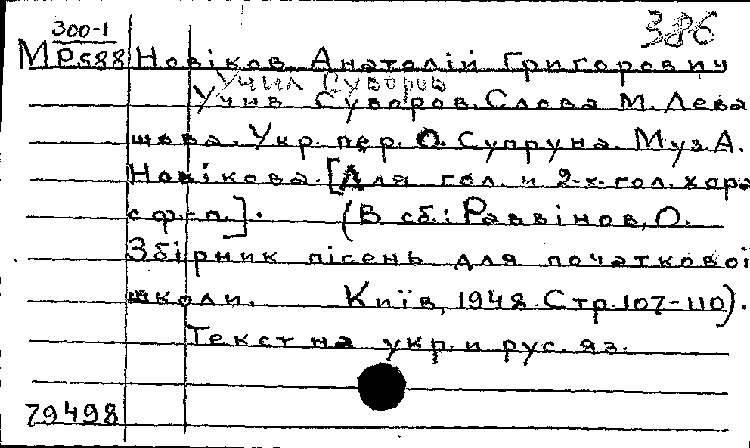 300-1
386
М Р588 Новіков Анатолій Григорович
Учил Суворов
Учив Суворов. Слова М. Лева
шова. Укр. пер. О. Супруна. Муз. А.
Новікова. [Для гол. и 2-х гол. хора
с ф-п.]. (В сб.: Раввінов, О.
Збірник пісень для початкової
школи. Київ, 1948. Стр. 107-110).
Текст на укр. и рус. яз.
79498